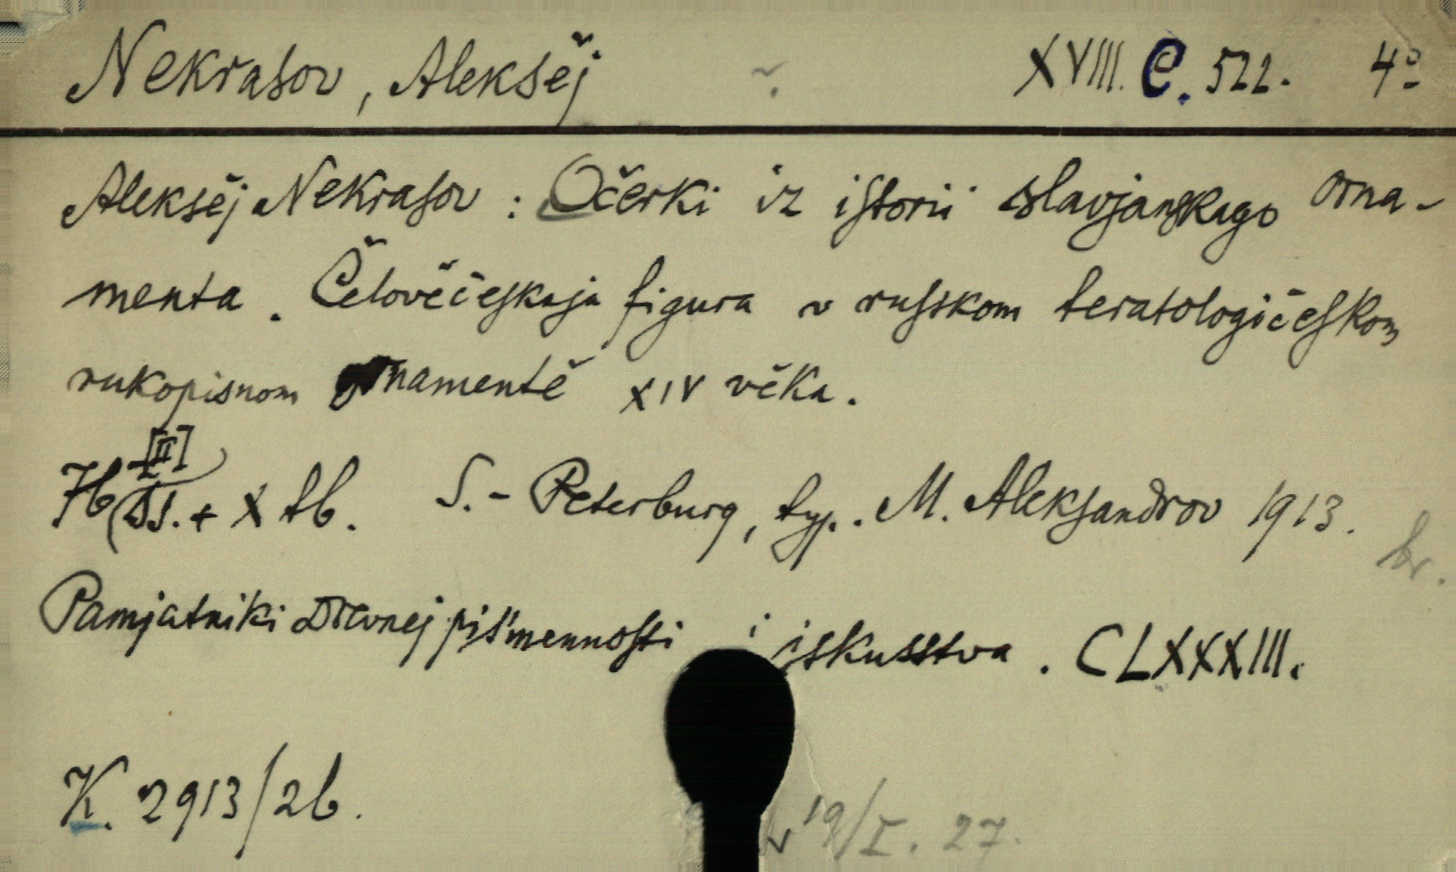 Nekrasov, Aleksěj XVIII. C. 522. 4º
Aleksěj Nekrasov : Očerki iz istorii slavjanskago orna-
menta. Čelověčeskaja figura v russkom teratologičeskom
rukopisnom ornamentě XIV věka.
[II]
76 ss. + X tb. S.-Peterburg, typ. M. Aleksandrov 1913.
br.
Pamjatniki drevnej pis'mennosti i iskusstva. CLXXXIII.
K. 2913/26.
19/I. 27.